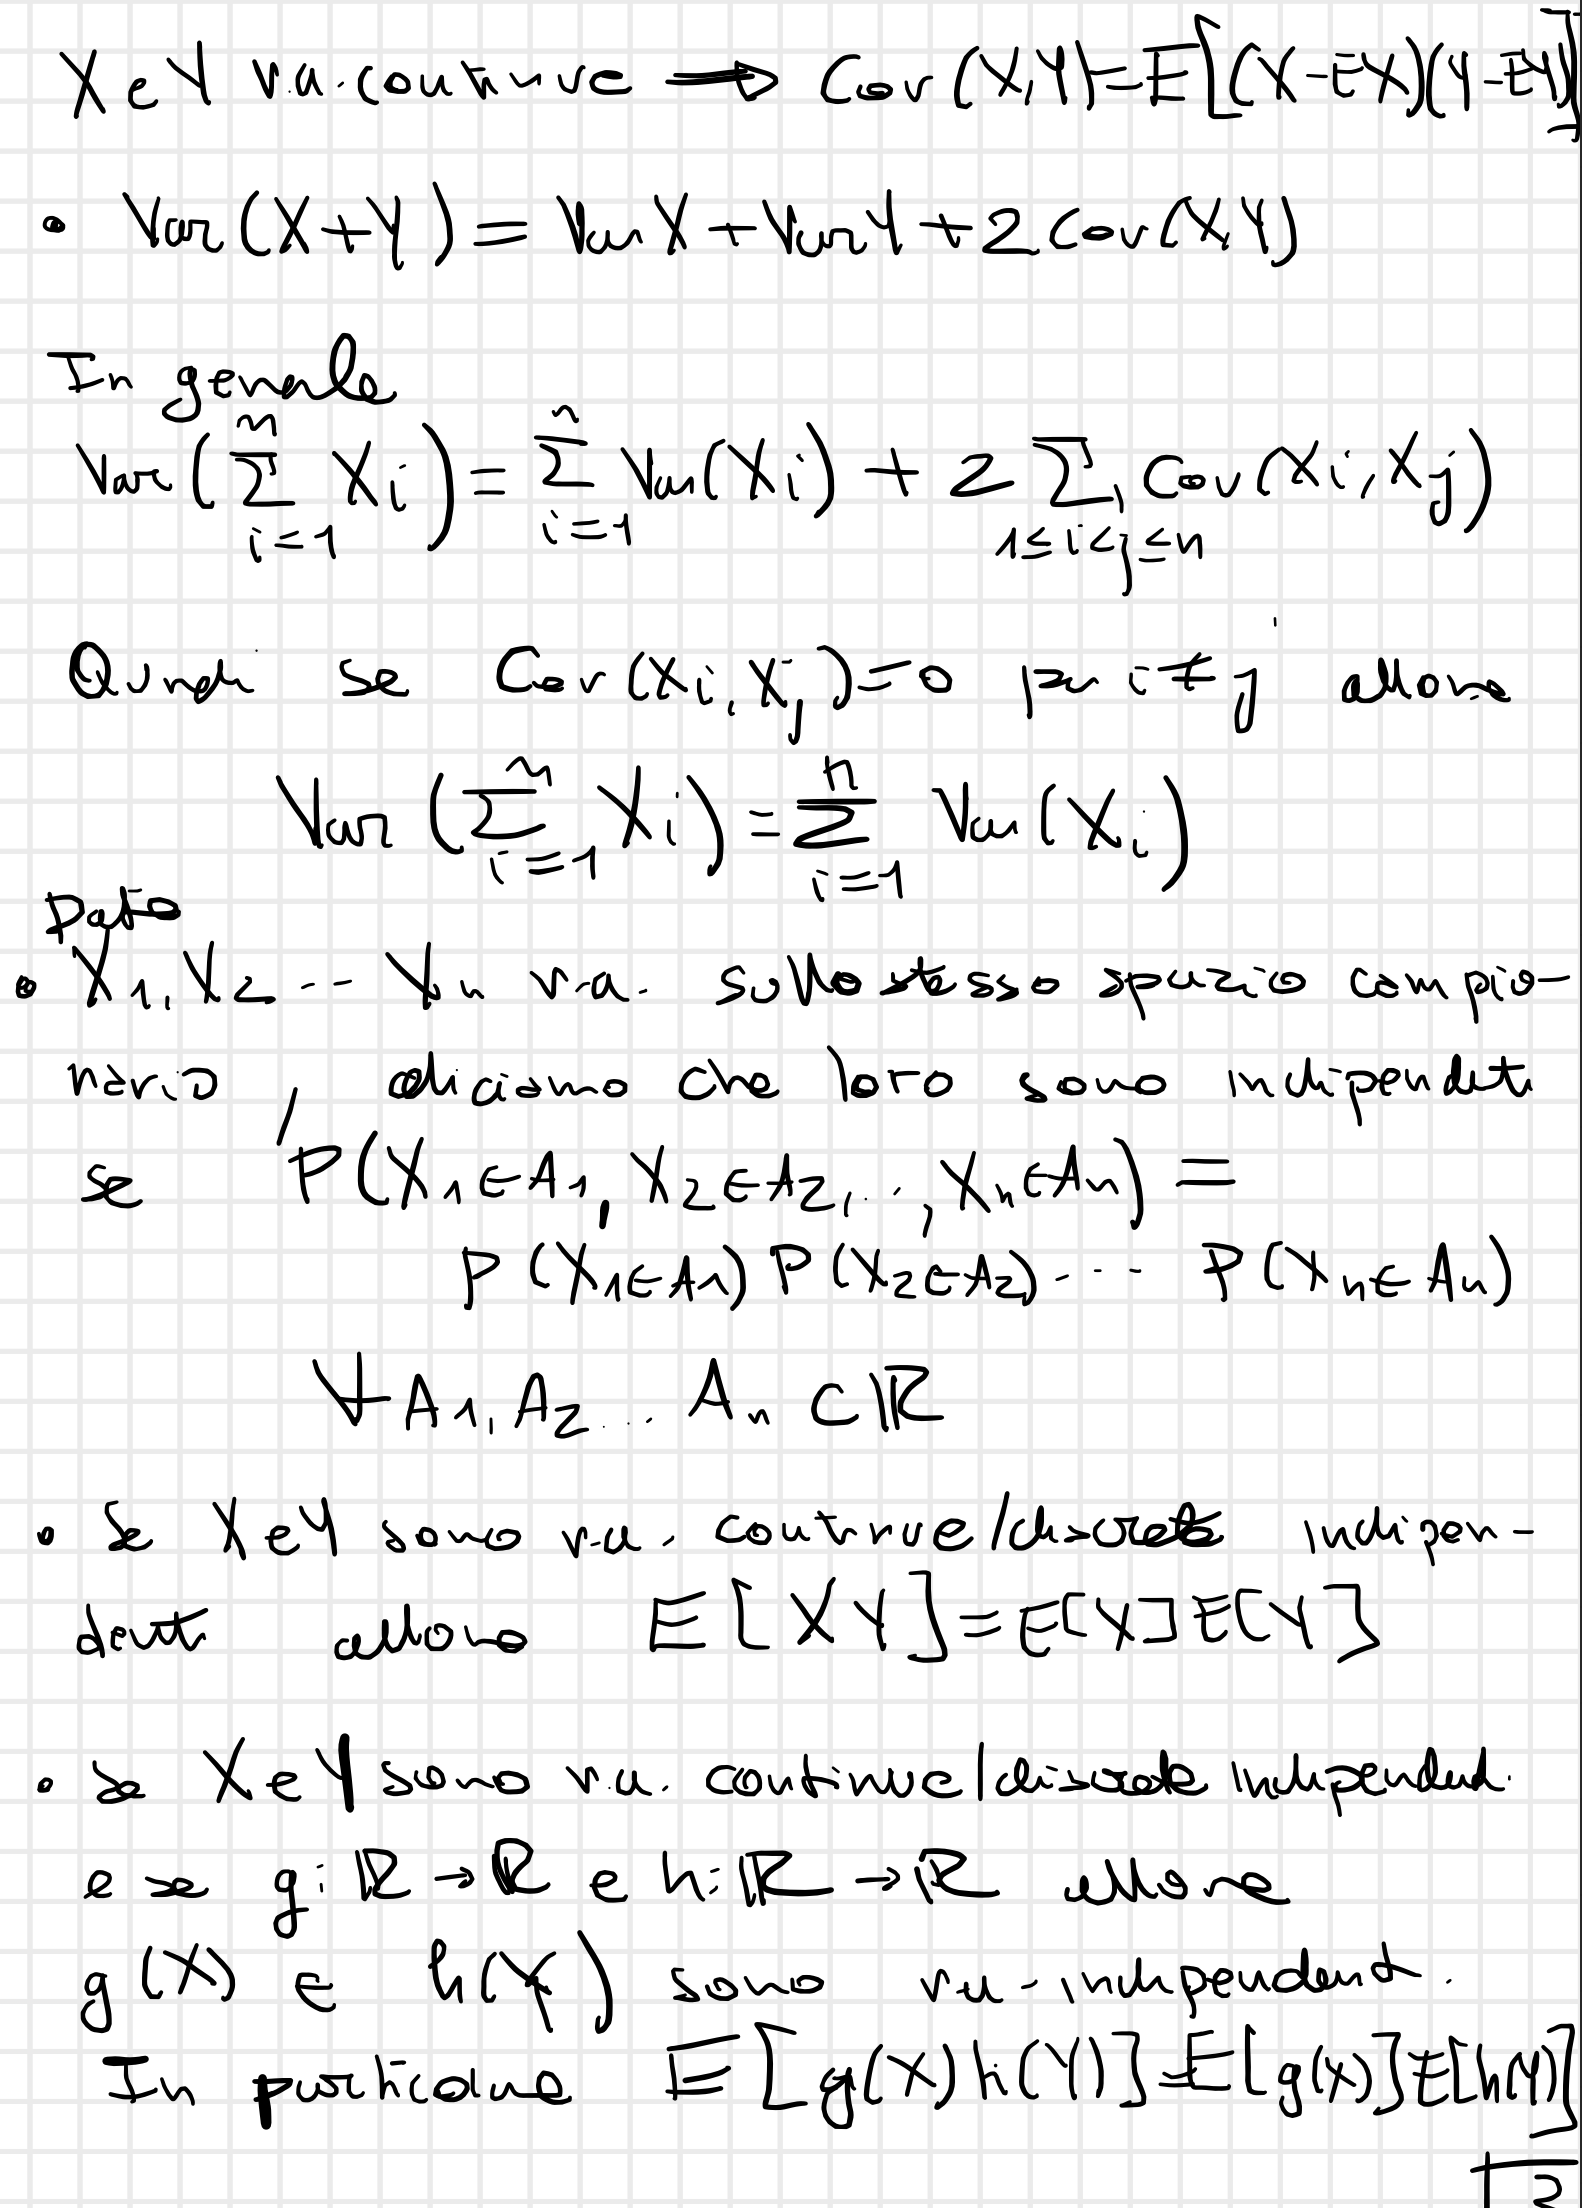 X e Y v.a. continue ⟹ Cov(X,Y)=E[(X-EX)(Y-EY)]
• Var(X+Y) = Var X + Var Y + 2 Cov(X,Y)
In generale
Var(∑_{i=1}^{n} X_i) = ∑_{i=1}^{n} Var(X_i) + 2 ∑_{1≤i<j≤n} Cov(X_i, X_j)
Quindi se Cov(X_i, X_j)=0 per i≠j allora
Var(∑_{i=1}^{n} X_i) = ∑_{i=1}^{n} Var(X_i)
Dato
• X_1, X_2 ... X_n v.a. sullo stesso spazio campio-
nario, diciamo che loro sono indipendenti
se P(X_1∈A_1, X_2∈A_2, ..., X_n∈A_n) =
P(X_1∈A_1) P(X_2∈A_2) ... P(X_n∈A_n)
∀ A_1, A_2 ... A_n ⊂ ℝ
• Se X e Y sono v.a. continue/discrete indipen-
denti allora E[XY]=E[X]E[Y]
• se X e Y sono v.a. continue/discrete indipendent.
e se g: ℝ→ℝ e h: ℝ→ℝ allora
g(X) e h(Y) sono v.a. indipendent.
In particolare E[g(X)h(Y)]=E[g(X)]E[h(Y)]